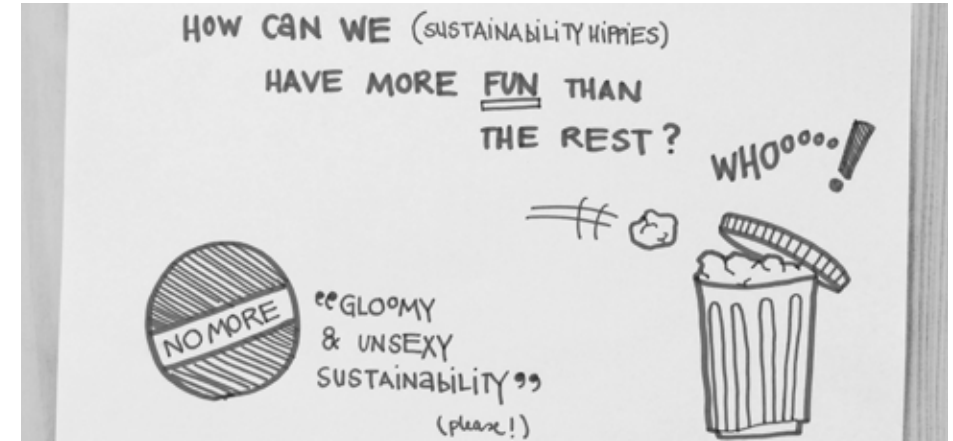 HOW CAN WE (SUSTAINABILITY HIPPIES)
HAVE MORE FUN THAN
THE REST?
WHOOOOO!
NO MORE
"GLOOMY
& UNSEXY
SUSTAINABILITY"
(please!)